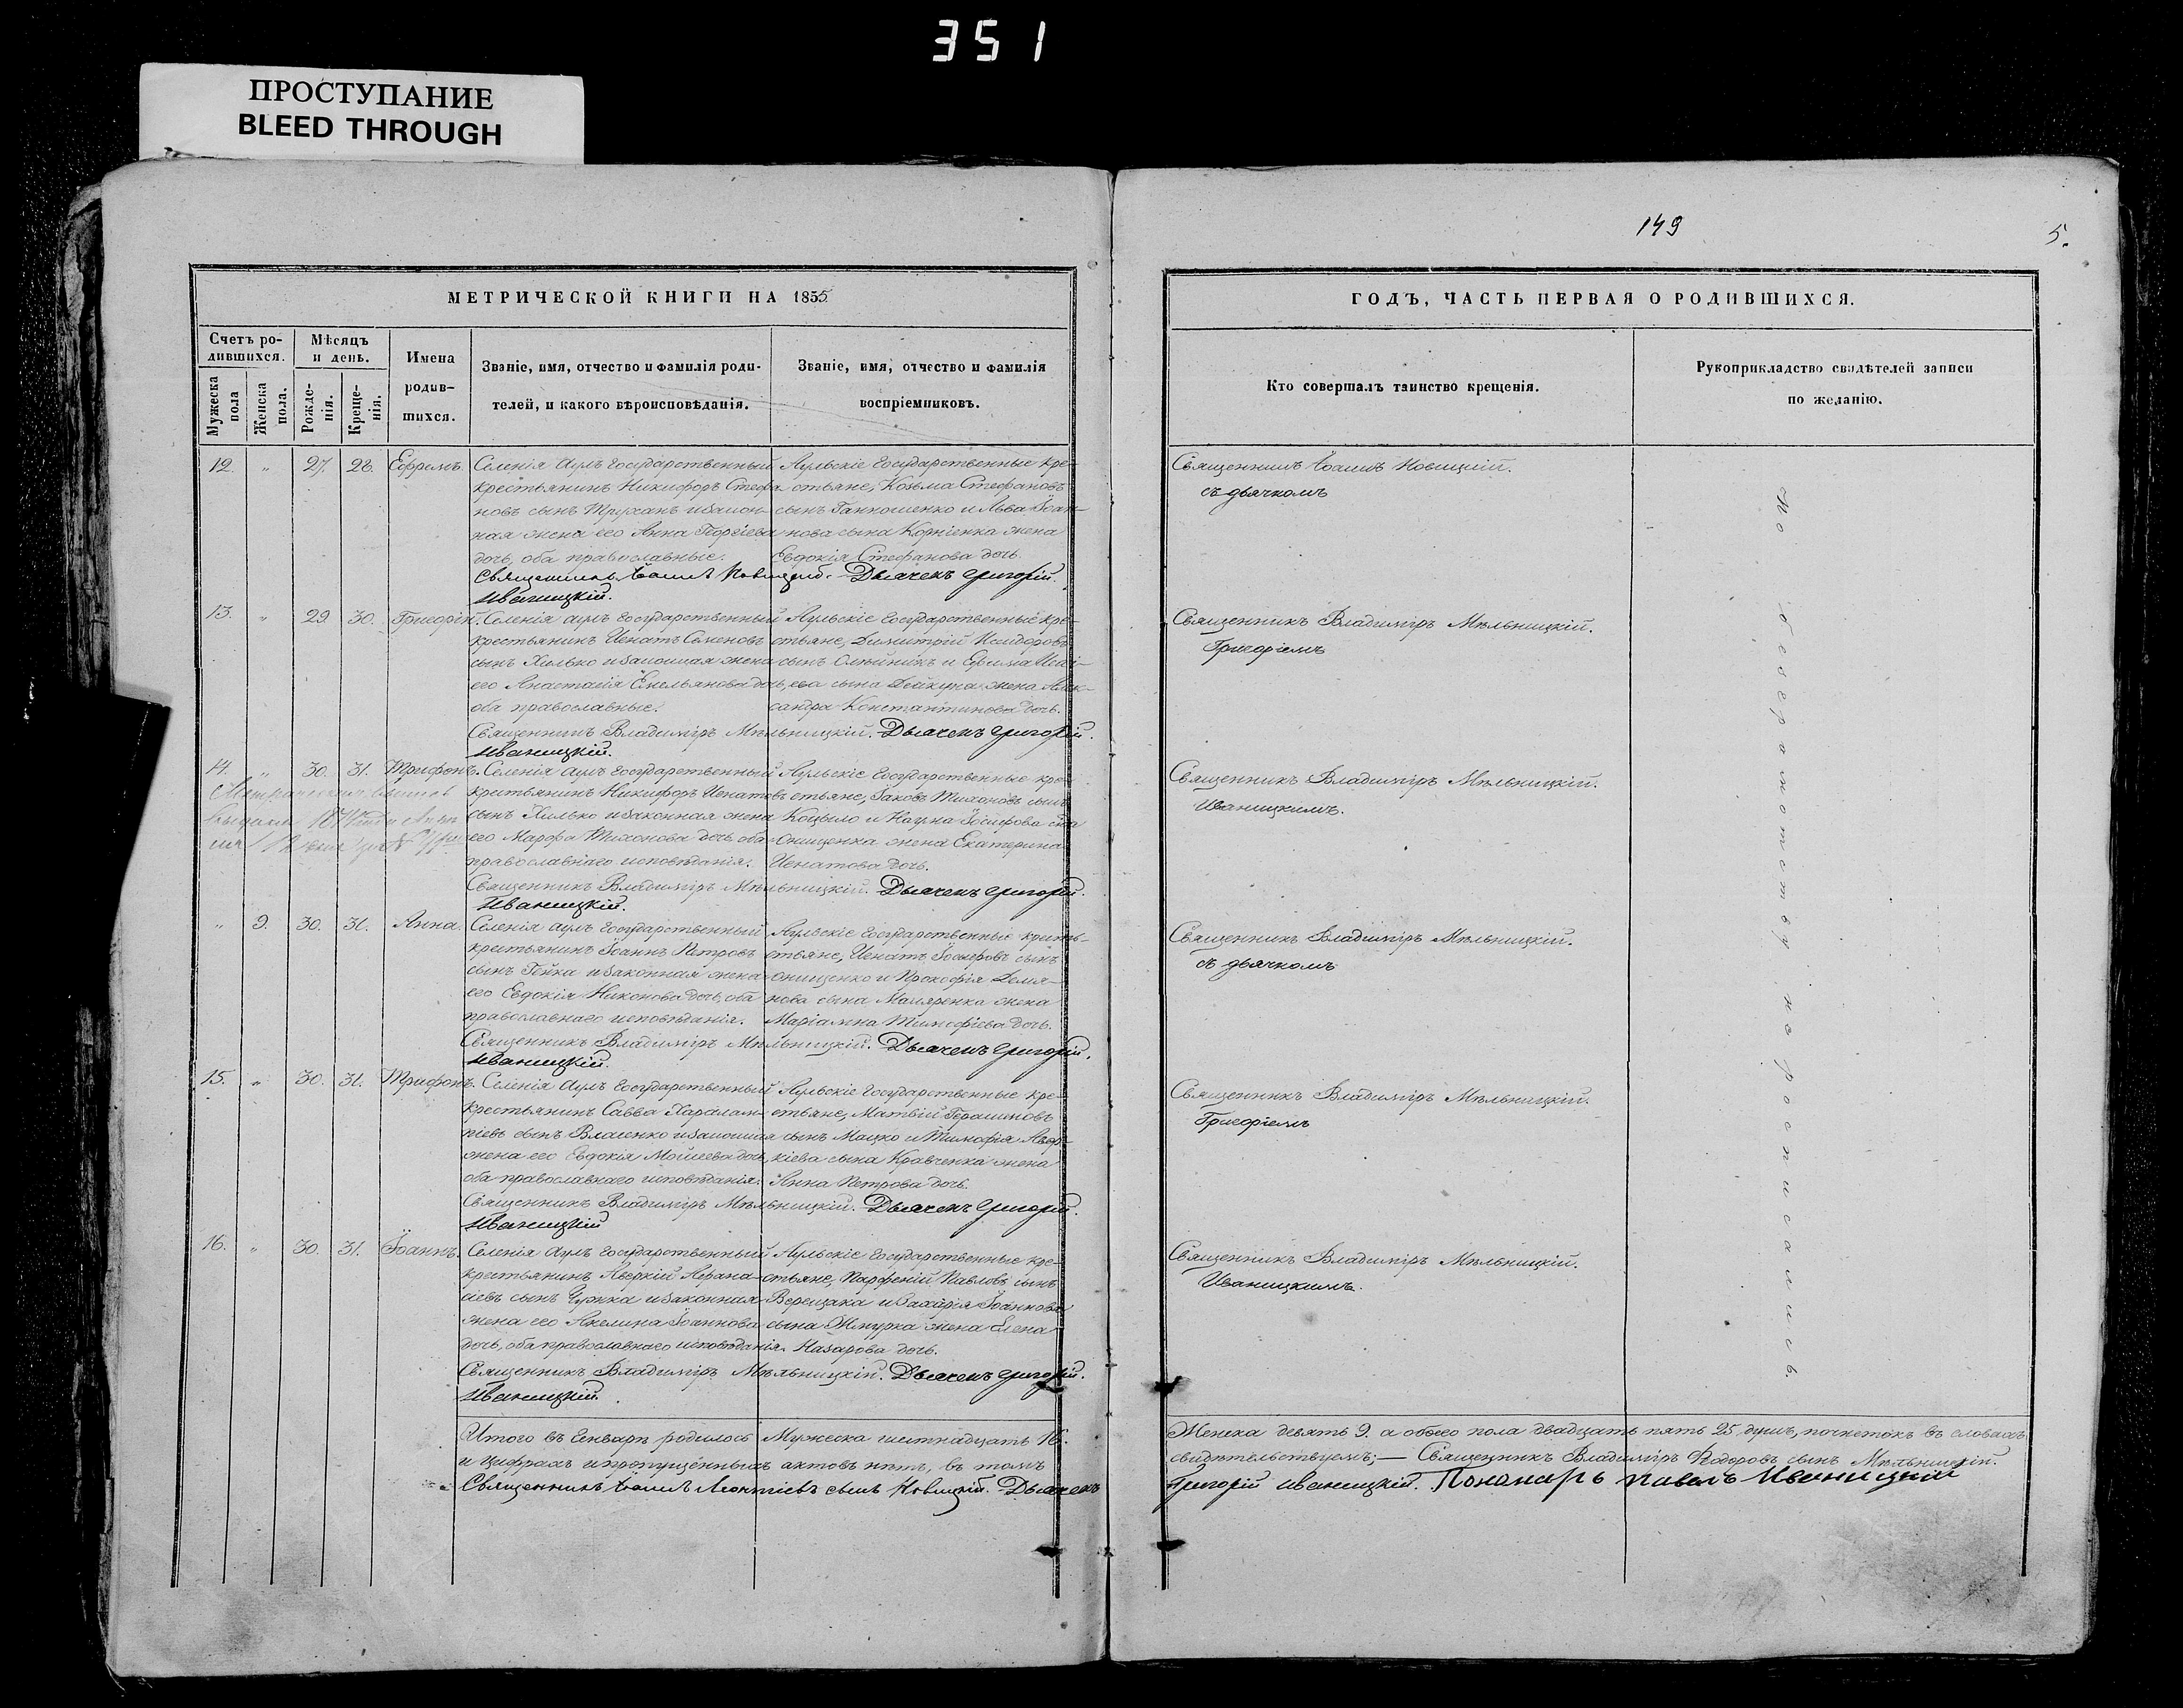 351
ПРОСТУПАНИЕ
BLEED THROUGH
149
5.
МЕТРИЧЕСКОЙ КНИГИ НА 1855
Счетъ ро-
дившихся.
Мужеска
пола
Женска
пола.
Мѣсяцъ
и день.
Рожде-
нія.
Креще-
нія.
Имена
родив-
шихся.
Званіе, имя, отчество и фамилія роди-
телей, и какого вѣроисповѣданія.
Званіе, имя, отчество и фамилія
воспріемниковъ.
12. " 27. 28. Ефремъ.
Селенія Аулъ государственный
крестьянинъ Никифоръ Стефа
новъ сынъ Труханъ и закон-
ная жена его Анна Георгіева
дочь, оба православные.
Аульскіе государственные кре-
стьяне, Козьма Стефановъ
сынъ Ганношенко и Льва Іоан-
нова сына Корніенка жена
Евдокія Стефанова дочь.
Священникъ Іоаннъ Новицкій. Дьячекъ Григорій
Иваницкій.
13. " 29 30. Григорій.
Селенія Аулъ государственный
крестьянинъ Игнатъ Семеновъ
сынъ Хилько и законная жена
его Анастасія Емельянова дочь,
оба православные.
Аульскіе государственные кре-
стьяне, Димитрій Исидоровъ
сынъ Олейникъ и Ефима
сына Дейкуна жена Алек-
сандра Константинова дочь.
Священникъ Владиміръ Мѣльницкій. Дьячекъ Григорій
Иваницкій.
14. " 30. 31. Трифонъ.
Селенія Аулъ государственный
кретьянинъ Никифоръ Игнатовъ
сынъ Хилько и законная жена
его Марфа Тихонова дочь, оба
православнаго исповѣданія.
Аульскіе государственные кре-
стьяне, Іаковъ Тихоновъ сынъ
Коцыло и Наума Іосифова сына
Онищенка жена Екатерина
Игнатова дочь.
Священникъ Владиміръ Мѣльницкій. Дьячекъ Григорій
Иваницкій.
" 9. 30. 31. Анна.
Селенія Аулъ государственный
кретьянинъ Іоаннъ Петровъ
сынъ Гейка и законная жена
его Евдокія Никонова дочь, оба
православнаго исповѣданія.
Аульскіе государственные
стьяне, Игнатъ Іосифовъ сынъ
Онищенко и Прокофія Демя-
нова сына Маляренка жена
Маріамна Тимофіева дочь.
Священникъ Владиміръ Мѣльницкій. Дьячекъ Григорій.
Иваницкій.
15. " 30. 31. Трифонъ.
Селенія Аулъ государственный
крестьянинъ Савва Харалам-
піевъ сынъ Власенко и законная
жена его Евдокія Мойсеева дочь,
оба православнаго исповѣданія.
Аульскіе государственные кре-
стьяне, Матвій Герасимовъ
сынъ Мацко и Тимофія Авер-
кіева сына Кравченка жена
Анна Петрова дочь.
Священникъ Владиміръ Мѣльницкій. Дьячекъ Григорій.
Иваницкій
16. " 30. 31. Іоаннъ.
Селенія Аулъ государственный
кретьянинъ Аверкій Афана-
сіевъ сынъ Чужка и законная
жена его Акелина Іоаннова
дочь, оба православнаго исповѣданія.
Аульскіе государственные кре-
стьяне, Парфеній Павловъ сынъ
Верещака и Захарія Іоаннова
сына Жмурка жена Елена
Назарова дочь.
Священникъ Владиміръ Мѣльницкій. Дьячекъ Григорій.
Иваницкій.
Итого въ Генварѣ родилось Мужеска шестнадцать 16.
и цифрахъ и пропущенныхъ актовъ нѣтъ, въ томъ
Священникъ Іоаннъ Леонтіевъ сынъ Новицкій. Дьячекъ
ГОДЪ, ЧАСТЬ ПЕРВАЯ О РОДИВШИХСЯ.
Кто совершалъ таинство крещенія.
Рукоприкладство свидѣтелей записи
по желанію.
Священникъ Іоаннъ Новицкій.
съ дьячкомъ
Священникъ Владиміръ Мѣльницкій.
Григоріемъ
Священникъ Владиміръ Мѣльницкій.
Иваницкимъ.
Священникъ Владиміръ Мѣльницкій.
съ дьячкомъ
Священникъ Владиміръ Мѣльницкій.
Григоріемъ
Священникъ Владиміръ Мѣльницкій.
Иваницкимъ.
По безграмотству не росписались.
Женска девять 9. а обоего пола двадцать пять 25 душъ, почистокъ въ словахъ
свидѣтельствуемъ;— Священникъ Владиміръ Ѳедоровъ сынъ Мѣльницкій.
Григорій Иваницкій. Пономарь Павелъ Иваницкій